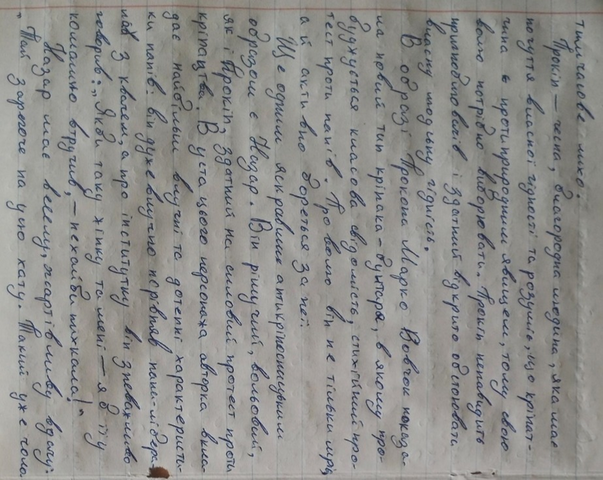 тимчасове лихо.
Прокіп – чесна, благородна людина, яка має
почуття власної гідності та розуміє, що кріпат-
чина є протиприродним явищем, тому свою
волю потрібно виборювати. Прокіп ненавидить
гнобителів і здатний відкрито обстоювати
власну людську гідність.
В образі Прокопа Марко Вовчок показа-
ла новий тип кріпака-бунтаря, в якому про-
буджується класова свідомість, стихійний про-
тест проти панів. Про волю він не тільки мріє,
а й активно бореться за неї.
Ще одним яскравим антикріпосницьким
образом є Назар. Він рішучий, вольовий,
як і Прокіп, здатний на сміливий протест проти
кріпацтва. В уста цього персонажа авторка вкла-
дає найбільш влучні та дотепні характеристи-
ки панів: він дуже влучно порівняв пана-лікаря
з квалем, а про інститутку він зневажливо
говорив: „Якби таку жінку та мені – я б її у
комашню втручив, – нехай би пихкала!“
Назар має веселу, жартівливу вдачу:
„Той зарегоче на усю хату. Такий уже чоло-